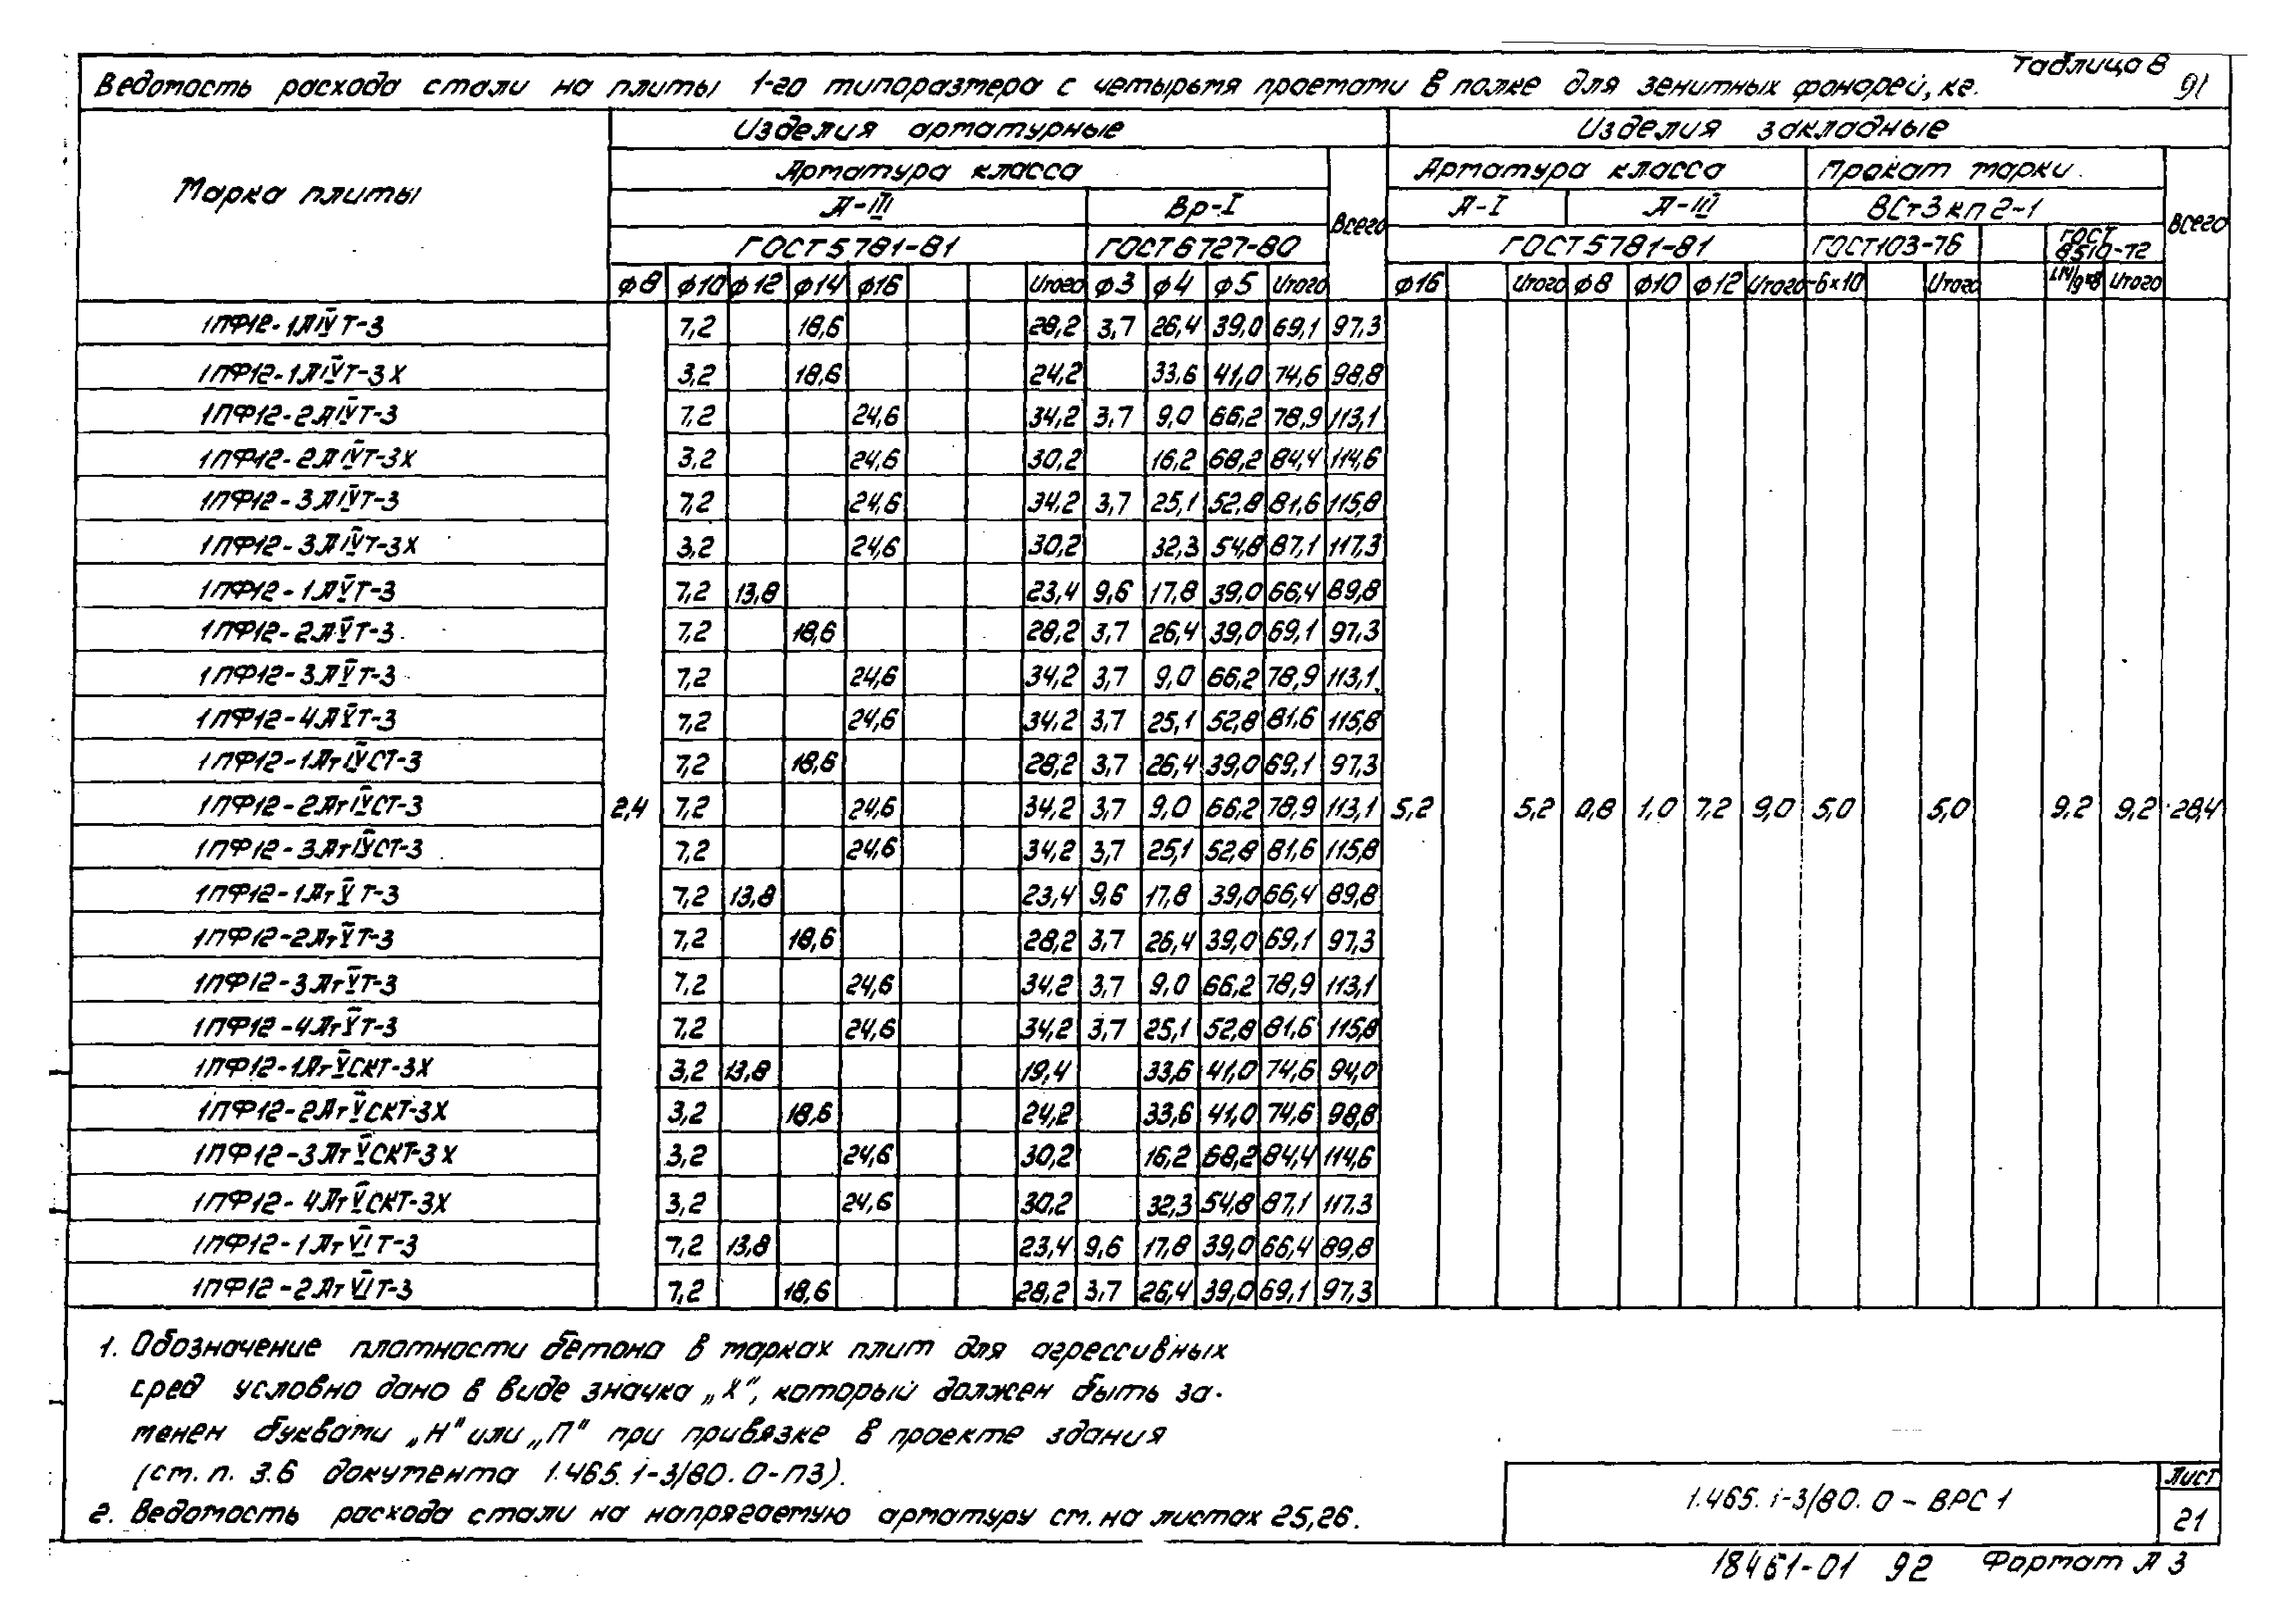 Таблица 8
Ведомость расхода стали на плиты 1-го типоразмера с четырьмя проемами в полке для зенитных фонарей, кг.
91
Марка плиты
Изделия арматурные
Изделия закладные
Арматура класса
Всего
Арматура класса
Прокат марки
Всего
А-III
Вр-I
А-I
А-III
ВСт3кп2-1
ГОСТ 5781-81
ГОСТ 6727-80
ГОСТ 5781-81
ГОСТ 103-76
ГОСТ 8510-72
ф8 ф10 ф12 ф14 ф16 Итого ф3 ф4 ф5 Итого ф16 Итого ф8 ф10 ф12 Итого -6×10 Итого Итого
1ПФ12-1АIVТ-3 7,2 18,6 28,2 3,7 26,4 39,0 69,1 97,3
1ПФ12-1АIVТ-3Х 3,2 18,6 24,2 33,6 41,0 74,6 98,8
1ПФ12-2АIVТ-3 7,2 24,6 34,2 3,7 9,0 66,2 78,9 113,1
1ПФ12-2АIVТ-3Х 3,2 24,6 30,2 16,2 68,2 84,4 114,6
1ПФ12-3АIVТ-3 7,2 24,6 34,2 3,7 25,1 52,8 81,6 115,8
1ПФ12-3АIVТ-3Х 3,2 24,6 30,2 32,3 54,8 87,1 117,3
1ПФ12-1АVТ-3 7,2 13,8 23,4 9,6 17,8 39,0 66,4 89,8
1ПФ12-2АVТ-3 7,2 18,6 28,2 3,7 26,4 39,0 69,1 97,3
1ПФ12-3АVТ-3 7,2 24,6 34,2 3,7 9,0 66,2 78,9 113,1
1ПФ12-4АVТ-3 7,2 24,6 34,2 3,7 25,1 52,8 81,6 115,8
1ПФ12-1АтIVСТ-3 7,2 18,6 28,2 3,7 26,4 39,0 69,1 97,3
1ПФ12-2АтIVСТ-3 2,4 7,2 24,6 34,2 3,7 9,0 66,2 78,9 113,1 5,2 5,2 0,8 1,0 7,2 9,0 5,0 5,0 9,2 9,2 28,4
1ПФ12-3АтIVСТ-3 7,2 24,6 34,2 3,7 25,1 52,8 81,6 115,8
1ПФ12-1АтVТ-3 7,2 13,8 23,4 9,6 17,8 39,0 66,4 89,8
1ПФ12-2АтVТ-3 7,2 18,6 28,2 3,7 26,4 39,0 69,1 97,3
1ПФ12-3АтVТ-3 7,2 24,6 34,2 3,7 9,0 66,2 78,9 113,1
1ПФ12-4АтVТ-3 7,2 24,6 34,2 3,7 25,1 52,8 81,6 115,8
1ПФ12-1АтVСКТ-3Х 3,2 13,8 19,4 33,6 41,0 74,6 94,0
1ПФ12-2АтVСКТ-3Х 3,2 18,6 24,2 33,6 41,0 74,6 98,8
1ПФ12-3АтVСКТ-3Х 3,2 24,6 30,2 16,2 68,2 84,4 114,6
1ПФ12-4АтVСКТ-3Х 3,2 24,6 30,2 32,3 54,8 87,1 117,3
1ПФ12-1АтVIТ-3 7,2 13,8 23,4 9,6 17,8 39,0 66,4 89,8
1ПФ12-2АтVIТ-3 7,2 18,6 28,2 3,7 26,4 39,0 69,1 97,3
1. Обозначение плотности бетона в марках плит для агрессивных
сред условно дано в виде значка „Х", который должен быть за-
менен буквами „Н" или „П" при привязке в проекте здания
(см. п. 3.6 документа 1.465.1-3/80.0-ПЗ).
2. Ведомость расхода стали на напрягаемую арматуру см. на листах 25,26.
1.465.1-3/80.0-ВРС1
Лист
21
18461-01 92 Формат А3